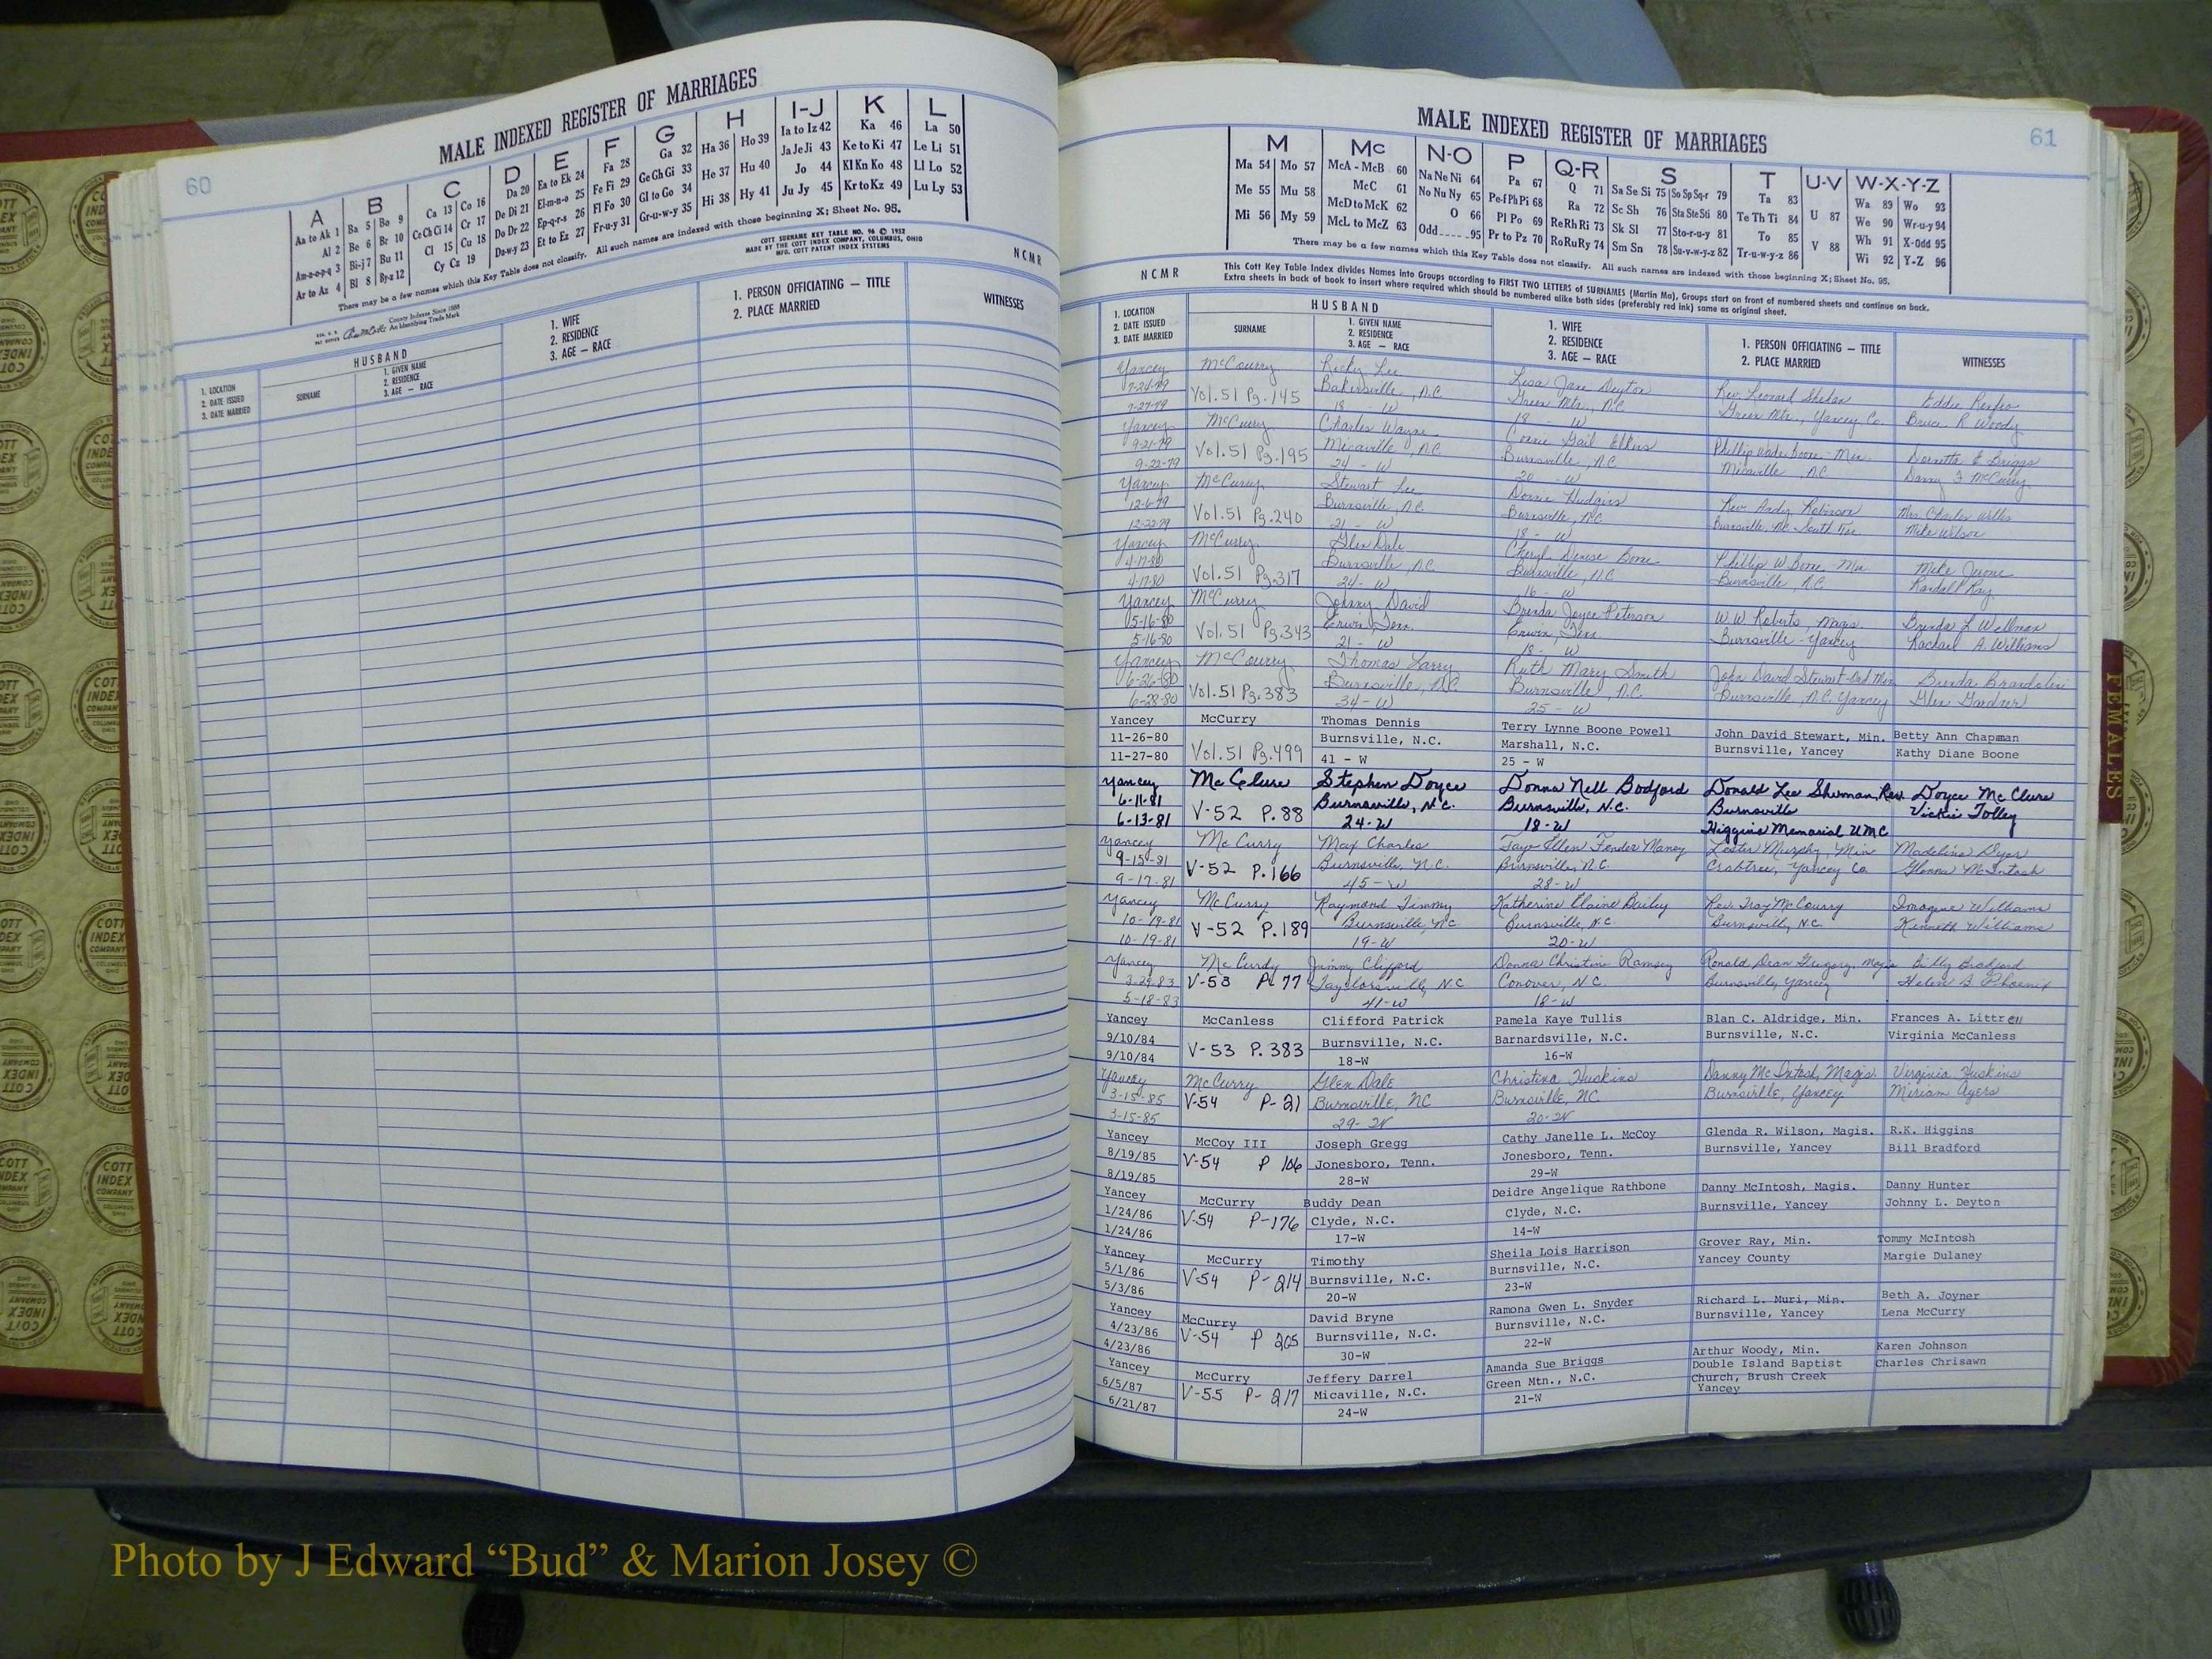 60
MALE INDEXED REGISTER OF MARRIAGES
A B C D E F G H I-J K L
Aa to Ak 1 Ba 5 Bo 9 Ca 13 Co 16 Da 20 Ea to Ek 24 Fa 28 Ga 32 Ha 36 Ho 39 Ia to Iz 42 Ka 46 La 50
Al 2 Be 6 Br 10 Ce Ch Ci 14 Cr 17 De Di 21 El-m-n-o 25 Fe Fi 29 Ge Gh Gi 33 He 37 Hu 40 Ja Je Ji 43 Ke to Ki 47 Le Li 51
Am-n-o-p-q 3 Bi-j 7 Bu 11 Cl 15 Cu 18 Do Dr 22 Ep-q-r-s 26 Fl Fo 30 Gl to Go 34 Hi 38 Hy 41 Jo 44 Kl Kn Ko 48 Ll Lo 52
Ar to Az 4 Bl 8 By-z 12 Cy Cz 19 Du-w-y 23 Et to Ez 27 Fr-u-y 31 Gr-u-w-y 35 Ju Jy 45 Kr to Kz 49 Lu Ly 53
There may be a few names which this Key Table does not classify. All such names are indexed with those beginning X; Sheet No. 95.
COTT SURNAME KEY TABLE NO. 96 © 1952
MADE BY THE COTT INDEX COMPANY, COLUMBUS, OHIO
MFG. COTT PATENT INDEX SYSTEMS
NCMR
County Indexes Since 1888
An Identifying Trade Mark
HUSBAND
1. LOCATION
2. DATE ISSUED
3. DATE MARRIED
SURNAME
1. GIVEN NAME
2. RESIDENCE
3. AGE — RACE
1. WIFE
2. RESIDENCE
3. AGE — RACE
1. PERSON OFFICIATING — TITLE
2. PLACE MARRIED
WITNESSES
61
MALE INDEXED REGISTER OF MARRIAGES
M Mc N-O P Q-R S T U-V W-X-Y-Z
Ma 54 Mo 57 McA - McB 60 Na Ne Ni 64 Pa 67 Q 71 Sa Se Si 75 So Sp Sq-r 79 Ta 83 Wa 89 Wo 93
Me 55 Mu 58 McC 61 No Nu Ny 65 Pe-f Ph Pi 68 Ra 72 Sc Sh 76 Sta Ste Sti 80 Te Th Ti 84 U 87 We 90 Wr-u-y 94
Mi 56 My 59 McD to McK 62 O 66 Pl Po 69 Re Rh Ri 73 Sk Sl 77 Sto-r-u-y 81 To 85 V 88 Wh 91 X-Odd 95
McL to McZ 63 Odd 95 Pr to Pz 70 Ro Ru Ry 74 Sm Sn 78 Su-v-w-y-z 82 Tr-u-w-y-z 86 Wi 92 Y-Z 96
There may be a few names which this Key Table does not classify. All such names are indexed with those beginning X; Sheet No. 95.
NCMR
This Cott Key Table Index divides Names into Groups according to FIRST TWO LETTERS of SURNAMES (Martin Ma), Groups start on front of numbered sheets and continue on back.
Extra sheets in back of book to insert where required which should be numbered alike both sides (preferably red ink) same as original sheet.
HUSBAND
1. LOCATION
2. DATE ISSUED
3. DATE MARRIED
SURNAME
1. GIVEN NAME
2. RESIDENCE
3. AGE — RACE
1. WIFE
2. RESIDENCE
3. AGE — RACE
1. PERSON OFFICIATING — TITLE
2. PLACE MARRIED
WITNESSES
Yancey McCourry Ricky Lee Lisa Jane Deyton Rev. Leonard Eddie Renfro
7-24-79 Vol.51 Pg.145 Bakersville, N.C. Green Mtn., N.C. Green Mtn., Yancey Co. Bruce R Woody
7-27-79 18 W 18 - W
Yancey McCurry Charles Wayne Gail Phillip Wade Boone - Min Briggs
9-21-79 Vol.51 Pg.195 Micaville, N.C. Burnsville, N.C. Micaville, N.C. Danny McCurry
9-22-79 24 - W 20 - W
Yancey McCurry Stewart Lee Donna Hudgins Rev. Andy Robinson Mrs. Charles Willis
12-6-79 Vol.51 Pg.240 Burnsville, N.C. Burnsville, N.C. Burnsville, NC South Toe Mike Wilson
12-22-79 21 - W 18 - W
Yancey McCurry Glen Dale Cheryl Denise Boone Phillip W Boone Min Mike
4-17-80 Vol.51 Pg.317 Burnsville, N.C. Burnsville, N.C. Burnsville, N.C. Randall Ray
4-17-80 24 - W 16 - W
Yancey McCurry Johnny David Brenda Joyce Peterson W W Roberts, Magis. Brenda L Wellman
5-16-80 Vol.51 Pg.343 Erwin, Tenn. Erwin, Tenn Burnsville - Yancey Rachael A. Williams
5-16-80 21 - W 18 - W
Yancey McCourry Thomas Larry Ruth Mary Smith John David Stewart-Ord Min Brenda
6-26-80 Vol.51 Pg.383 Burnsville, N.C. Burnsville, N.C. Burnsville, N.C. Yancey Glen Gardner
6-28-80 34 - W 25 - W
Yancey McCurry Thomas Dennis Terry Lynne Boone Powell John David Stewart, Min. Betty Ann Chapman
11-26-80 Vol.51 Pg.499 Burnsville, N.C. Marshall, N.C. Burnsville, Yancey Kathy Diane Boone
11-27-80 41 - W 25 - W
Yancey McClure Stephen Doyce Donna Nell Bodford Donald Lee Sherman, Rev. Doyce McClure
6-11-81 V-52 P.88 Burnsville, N.C. Burnsville, N.C. Burnsville Vickie Tolley
6-13-81 24-W 18-W Higgins Memorial U.M.C
Yancey McCurry Max Charles Faye Ellen Fender Maney Lester Murphy, Min Madeline Dyer
9-15-81 V-52 P.166 Burnsville, N.C. Burnsville, N.C. Crabtree, Yancey Co. Glenna McIntosh
9-17-81 45-W 28-W
Yancey McCurry Raymond Timmy Katherine Elaine Bailey Rev. Troy McCourry Imogene Williams
10-19-81 V-52 P.189 Burnsville, N.C. Burnsville, N.C. Burnsville, N.C. Kenneth Williams
10-19-81 19-W 20-W
Yancey McCurdy Jimmy Clifford Donna Christine Ramsey Ronald Dean Gregory, Magis Billy Bradford
3-29-83 V-53 P-77 Taylorsville, N.C Conover, N.C. Burnsville, Yancey Helen B Phoenix
5-18-83 41-W 18-W
Yancey McCanless Clifford Patrick Pamela Kaye Tullis Blan C. Aldridge, Min. Frances A. Littrell
9/10/84 V-53 P.383 Burnsville, N.C. Barnardsville, N.C. Burnsville, N.C. Virginia McCanless
9/10/84 18-W 16-W
Yancey McCurry Glen Dale Christina Huskins Danny McIntosh, Magis. Virginia Huskins
3-15-85 V-54 P-21 Burnsville, NC Burnsville, NC Burnsville, Yancey Miriam Ayers
3-15-85 29-W 20-W
Yancey McCoy III Joseph Gregg Cathy Janelle L. McCoy Glenda R. Wilson, Magis. R.K. Higgins
8/19/85 V-54 P 106 Jonesboro, Tenn. Jonesboro, Tenn. Burnsville, Yancey Bill Bradford
8/19/85 28-W 29-W
Yancey McCurry Buddy Dean Deidre Angelique Rathbone Danny McIntosh, Magis. Danny Hunter
1/24/86 V-54 P-176 Clyde, N.C. Clyde, N.C. Burnsville, Yancey Johnny L. Deyton
1/24/86 17-W 14-W
Yancey McCurry Timothy Sheila Lois Harrison Grover Ray, Min. Tommy McIntosh
5/1/86 V-54 P-214 Burnsville, N.C. Burnsville, N.C. Yancey County Margie Dulaney
5/3/86 20-W 23-W
Yancey McCurry David Bryne Ramona Gwen L. Snyder Richard L. Muri, Min. Beth A. Joyner
4/23/86 V-54 P 205 Burnsville, N.C. Burnsville, N.C. Burnsville, Yancey Lena McCurry
4/23/86 30-W 22-W
Yancey McCurry Jeffery Darrel Amanda Sue Briggs Arthur Woody, Min. Karen Johnson
6/5/87 V-55 P-217 Micaville, N.C. Green Mtn., N.C. Double Island Baptist Charles Chrisawn
6/21/87 24-W 21-W Church, Brush Creek
Yancey
FEMALES
COTT
INDEX
COMPANY
Photo by J Edward “Bud” & Marion Josey ©